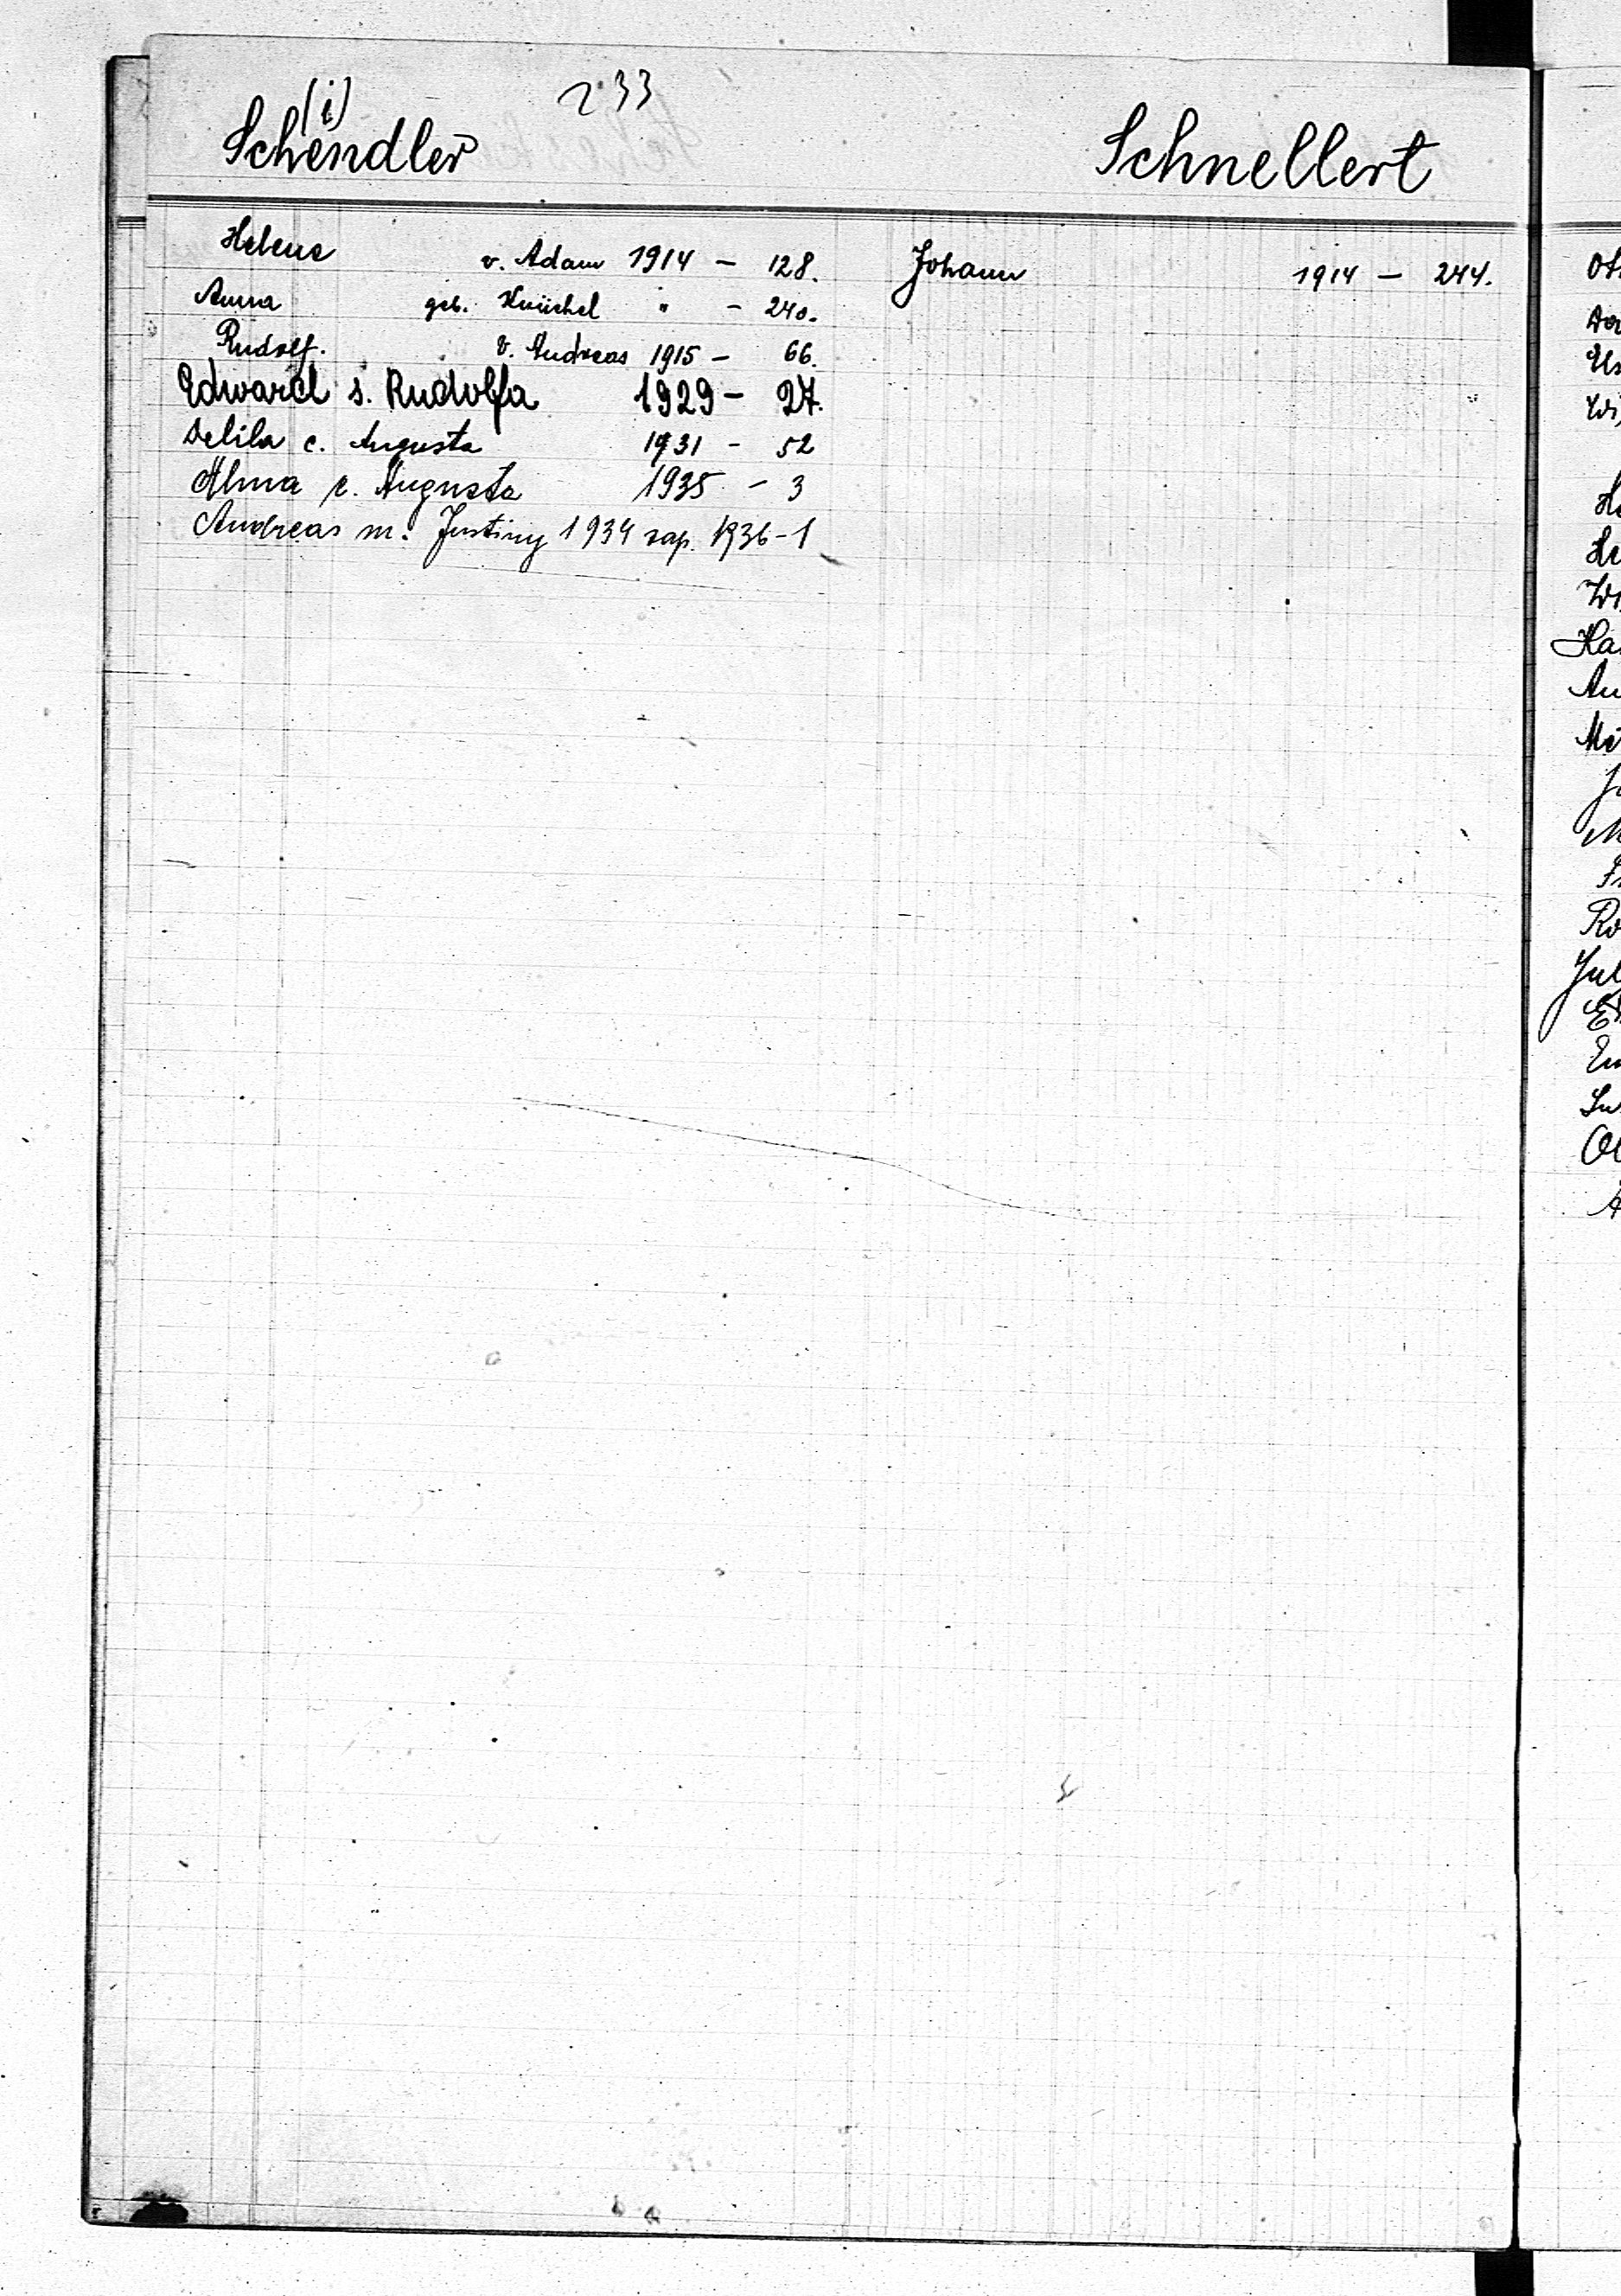 233
Schendler (i)
Schnellert
Helene v. Adam 1914 — 128.
Anna geb. Knüchel " — 240.
Rudolf. v. Andreas 1915 — 66.
Edward s. Rudolfa 1929 — 27.
Delila c. Augusta 1931 - 52
Alma c. Augusta 1935 - 3
Andreas m. Justiny 1934 zap. 1936-1
Johann 1914 — 244.